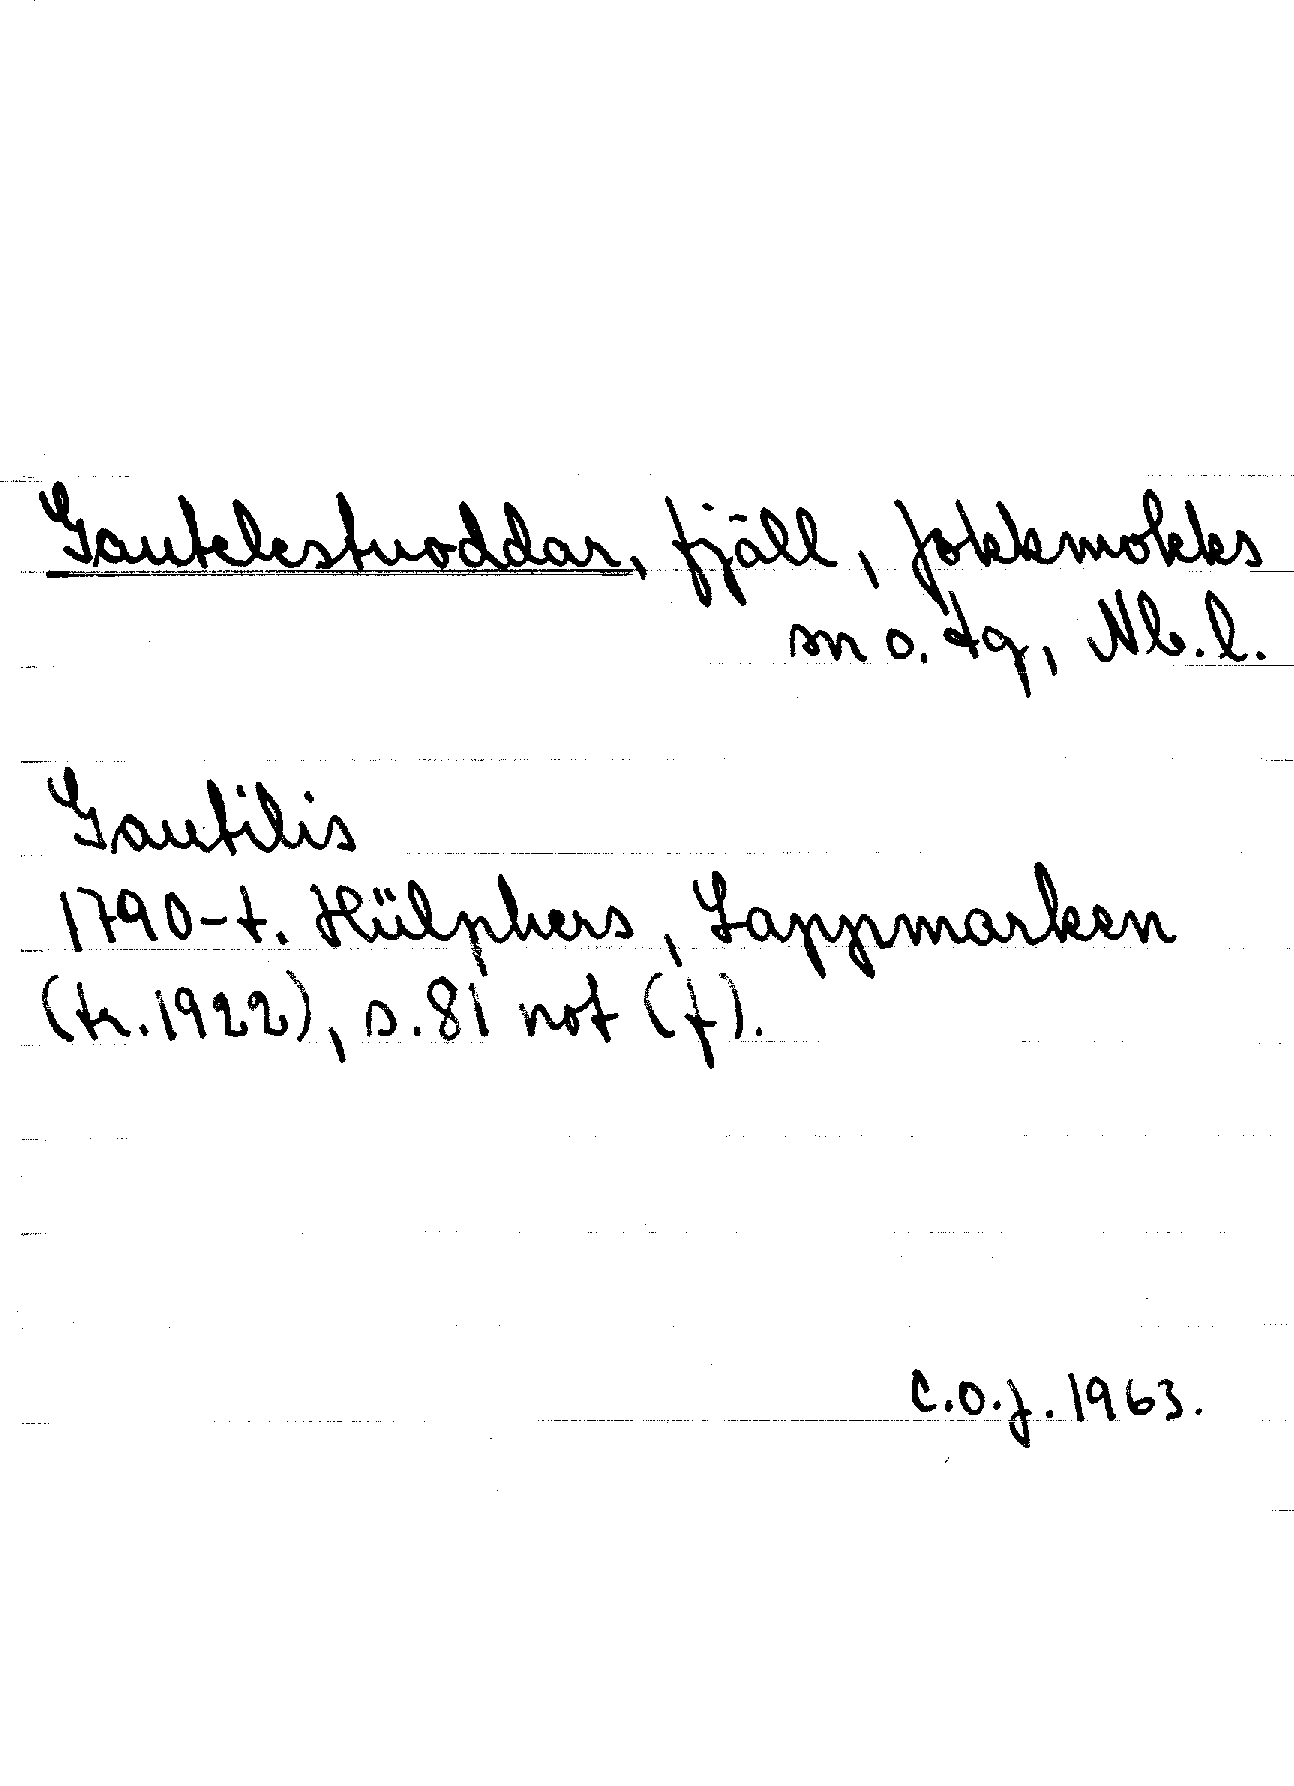 Gautelestuoddar, fjäll, Jokkmokks
sn o. tg, Nb.l.
Gautilis
1790-t. Hülphers, Lappmarken
(tr. 1922), s. 81 not (f).
C.O.J. 1963.